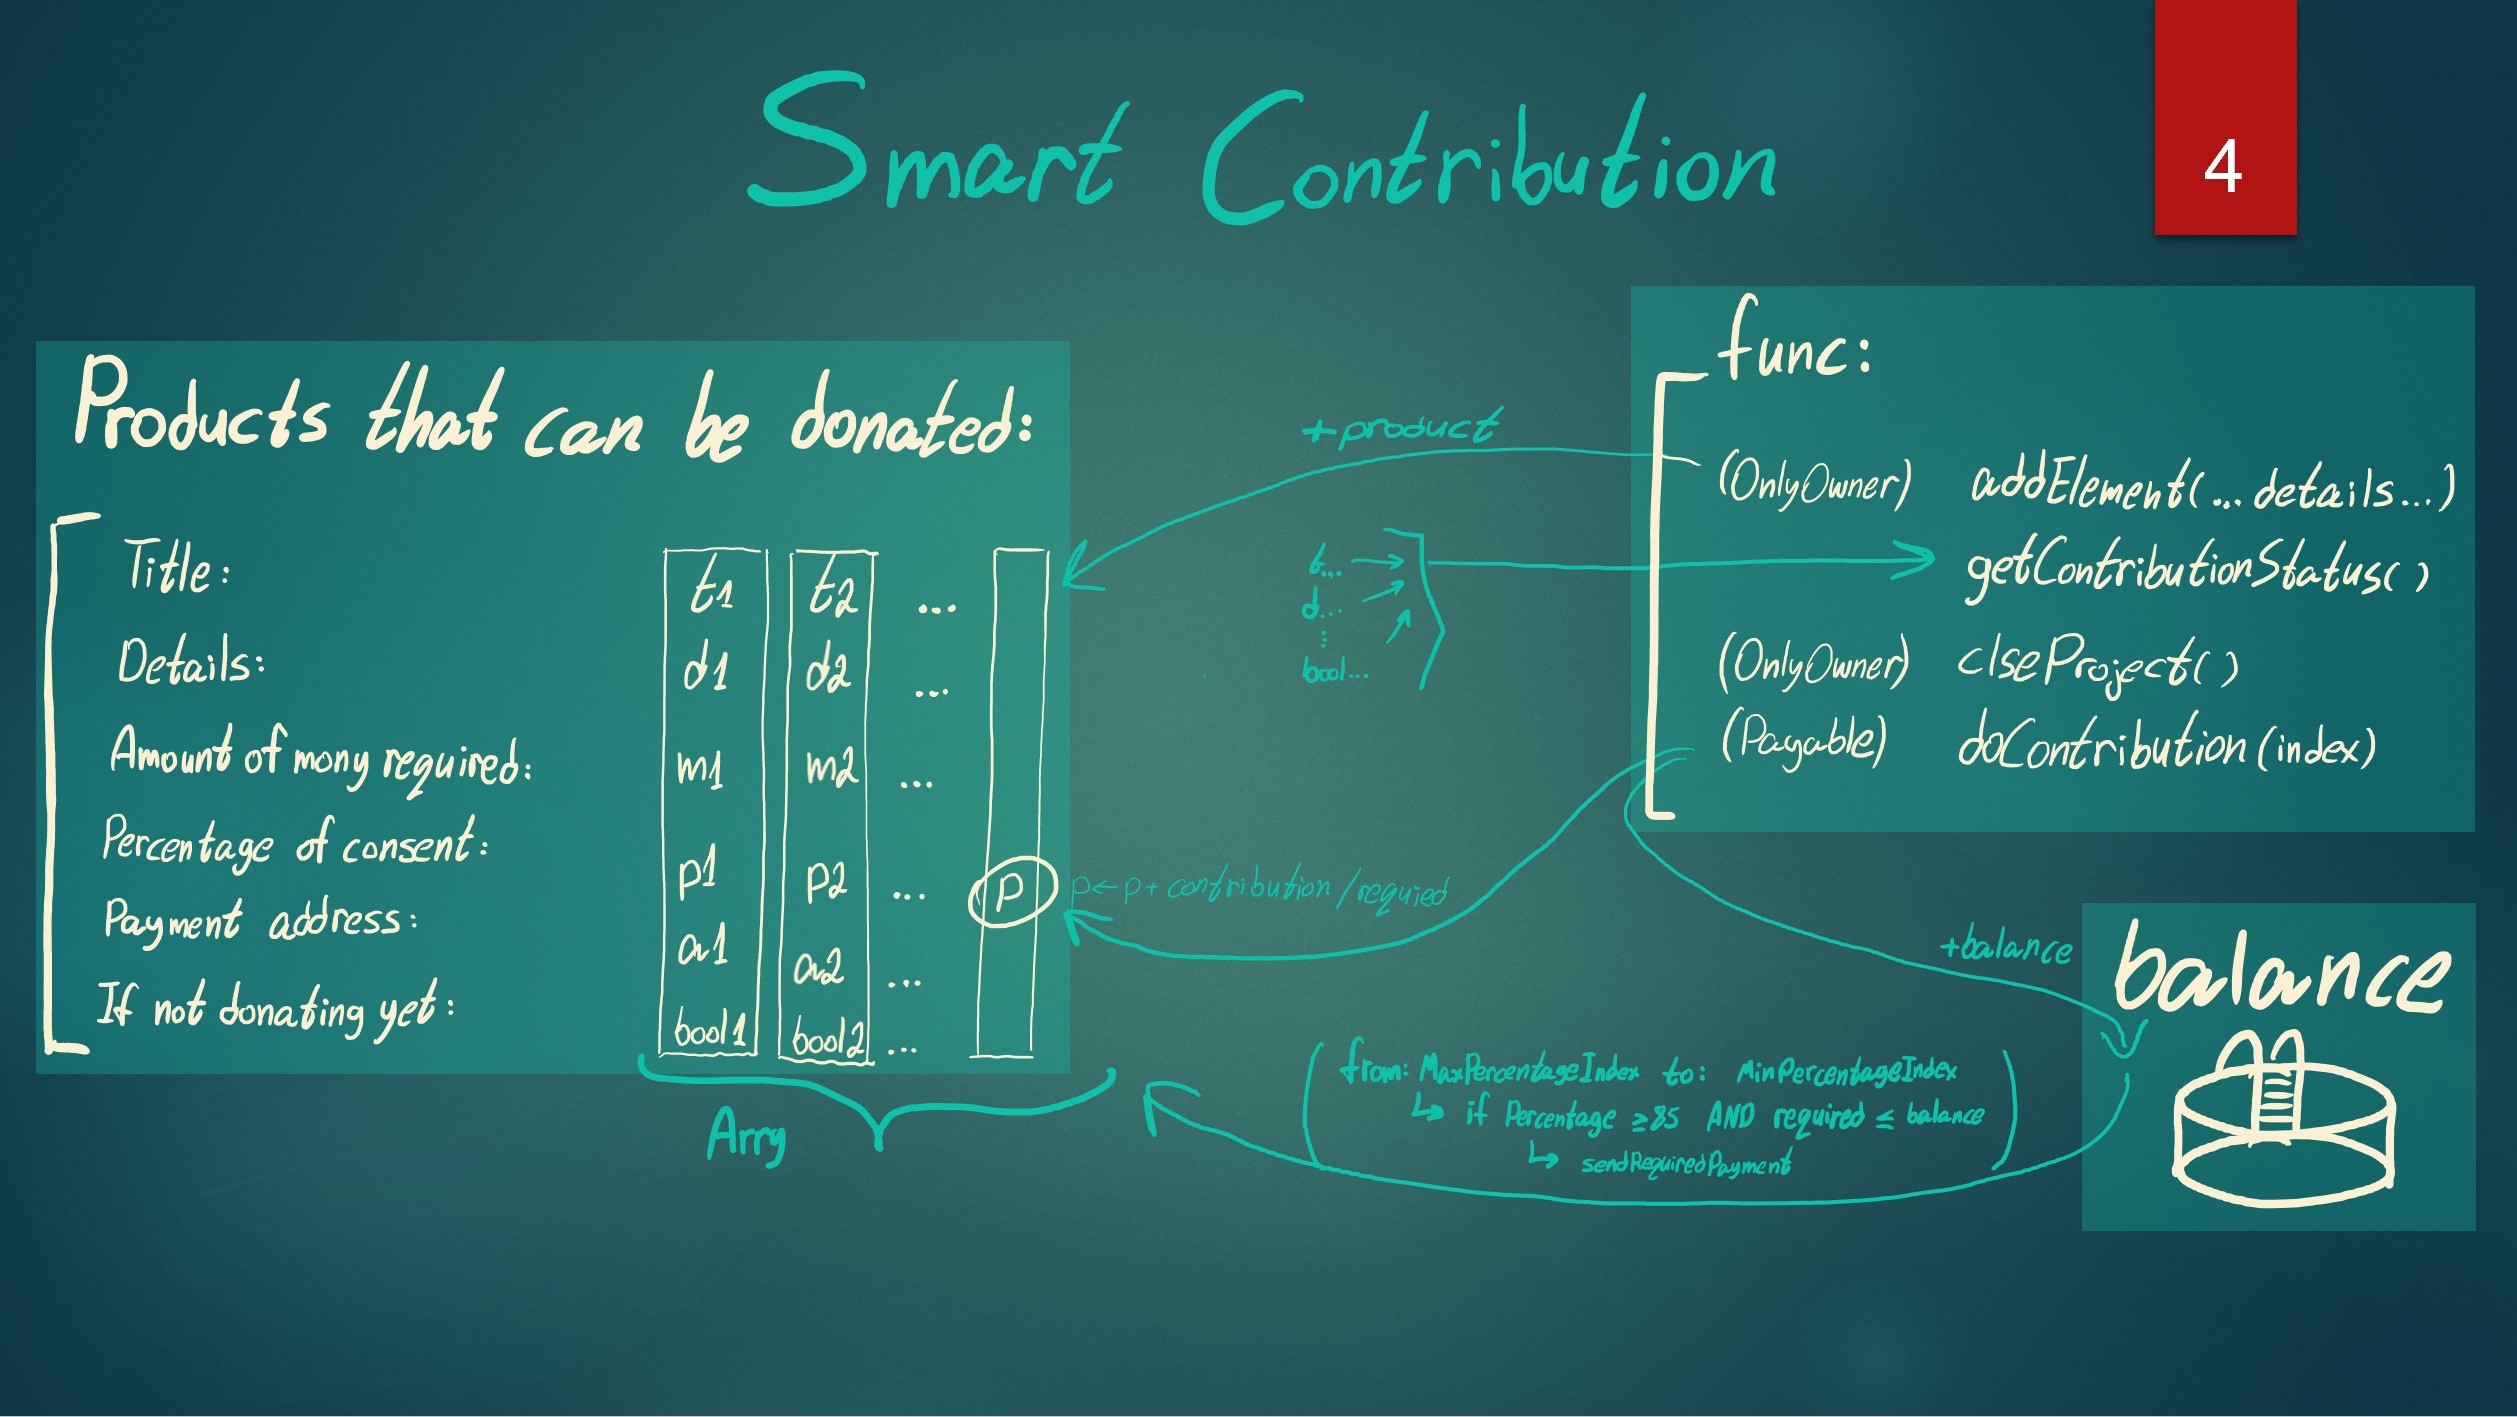 Smart Contribution
4
Products that can be donated:
Title:
Details:
Amount of mony required:
Percentage of consent:
Payment address:
If not donating yet:
t1 t2 ...
d1 d2 ...
m1 m2 ...
p1 p2 ... p
a1 a2 ...
bool1 bool2 ...
Arry
+product
t...
d...
⋮
bool...
p←p+ contribution/requied
func:
(OnlyOwner) addElement(...details...)
getContributionStatus()
(OnlyOwner) clseProject()
(Payable) doContribution(index)
+balance
balance
(from: MaxPercentageIndex to: MinPercentageIndex
↳ if Percentage ≥85 AND required ≤ balance
↳ sendRequiredPayment)